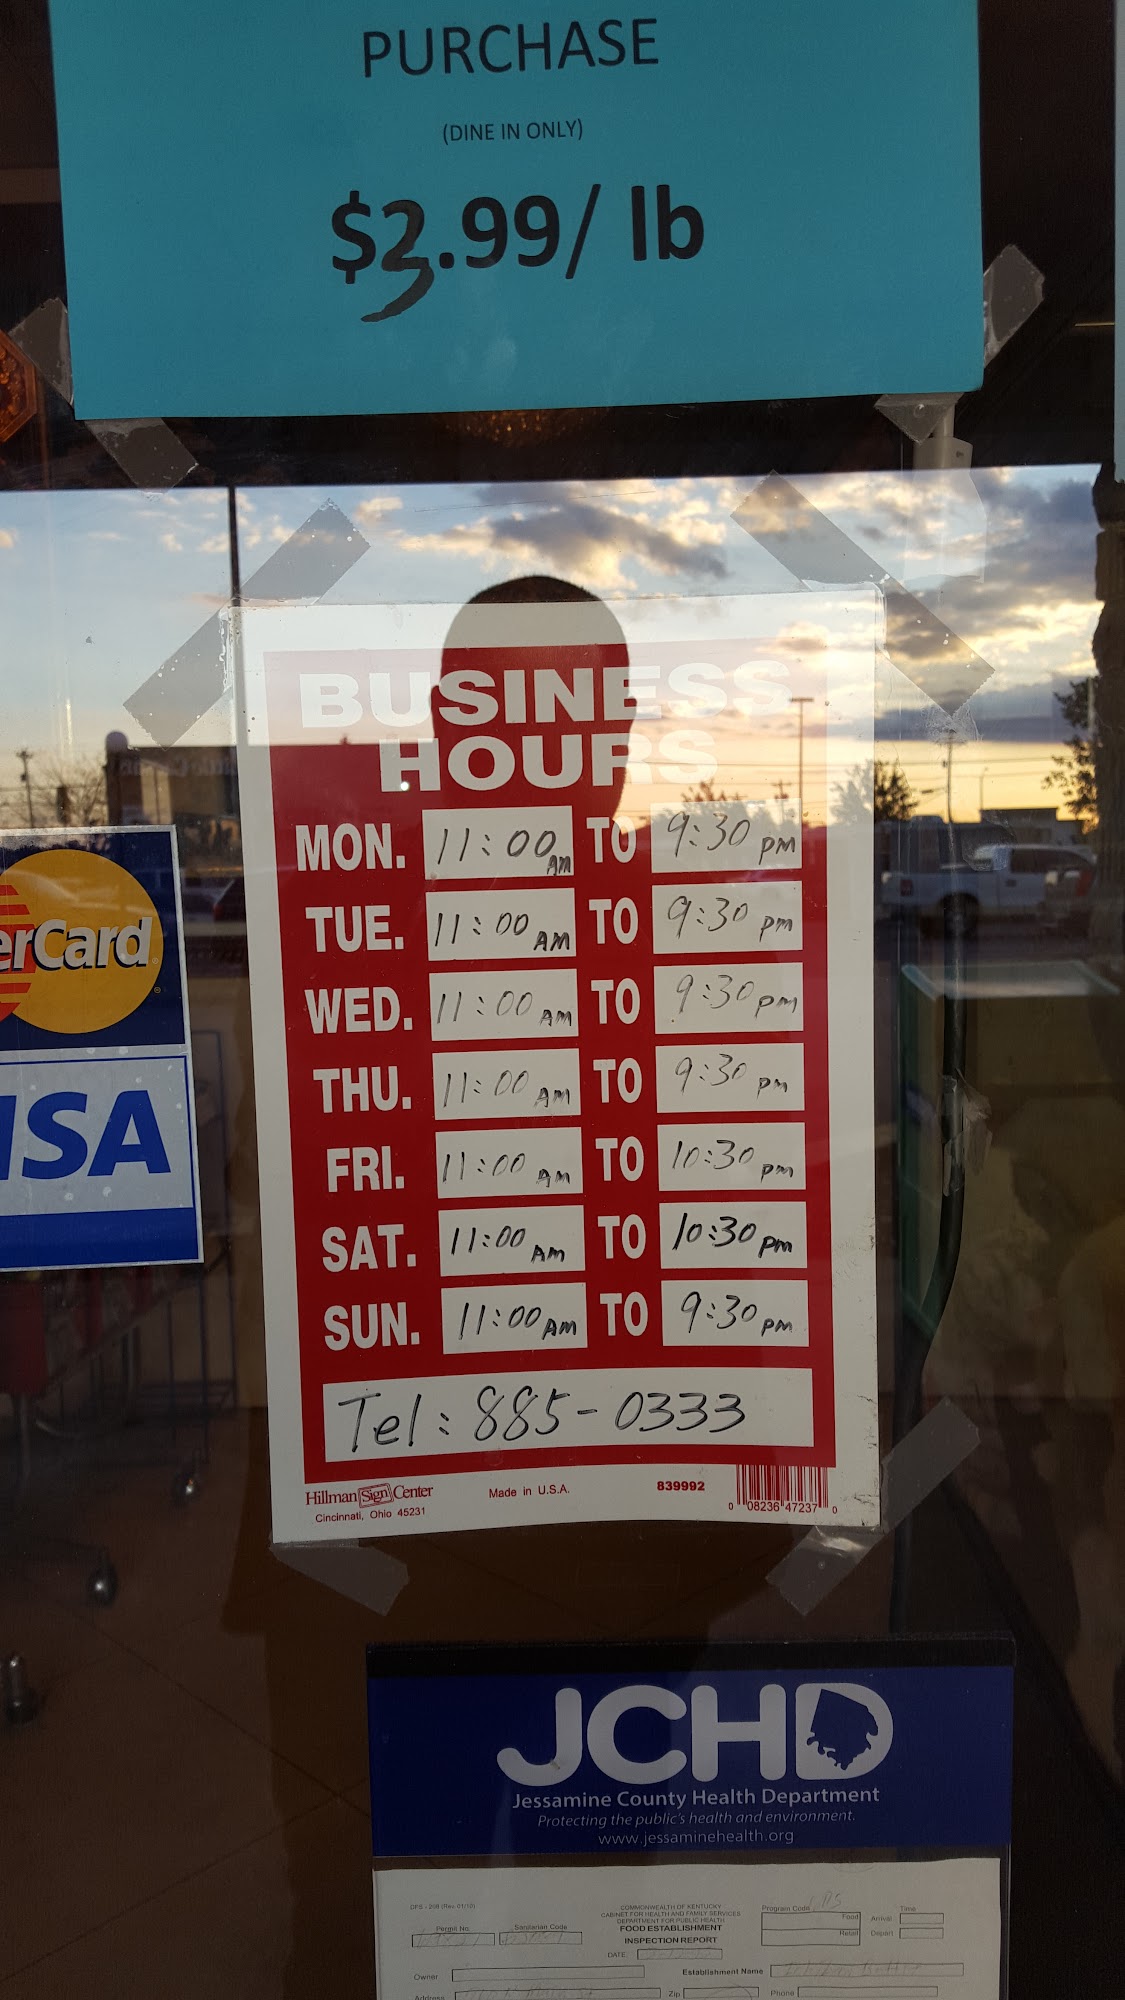 PURCHASE
(DINE IN ONLY)
$3.99/ lb
BUSINESS
HOURS
MON. 11:00 AM TO 9:30 pm
TUE. 11:00 AM TO 9:30 pm
WED. 11:00 AM TO 9:30 pm
THU. 11:00 AM TO 9:30 pm
FRI. 11:00 AM TO 10:30 pm
SAT. 11:00 AM TO 10:30 pm
SUN. 11:00 AM TO 9:30 pm
Tel: 885-0333
Hillman Sign Center
Cincinnati, Ohio 45231
Made in U.S.A.
839992
0 08236 47237 0
erCard
ISA
JCHD
Jessamine County Health Department
Protecting the public's health and environment.
www.jessaminehealth.org
COMMONWEALTH OF KENTUCKY
CABINET FOR HEALTH AND FAMILY SERVICES
DEPARTMENT FOR PUBLIC HEALTH
FOOD ESTABLISHMENT
INSPECTION REPORT
DATE:
Permit No.
Sanitarian Code
Program Code
Food
Retail
Time
Arrival
Depart
Owner
Establishment Name
Address
Zip
Phone